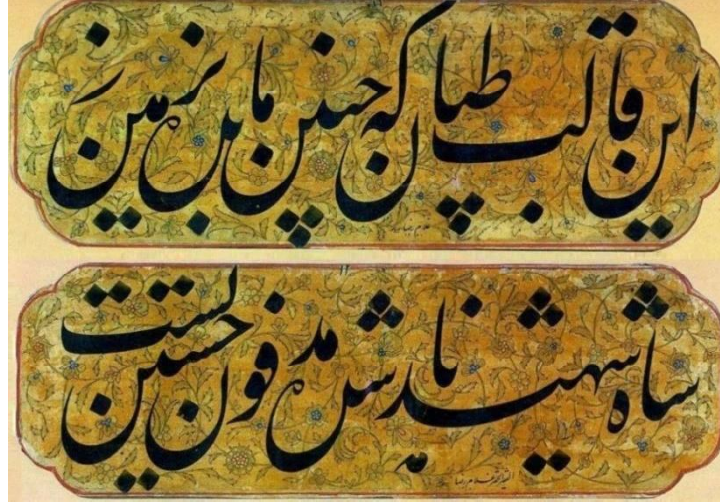 این قالب طپان که چنین مانده بر زمین
شاه شهید ناشده مدفون حسین تست